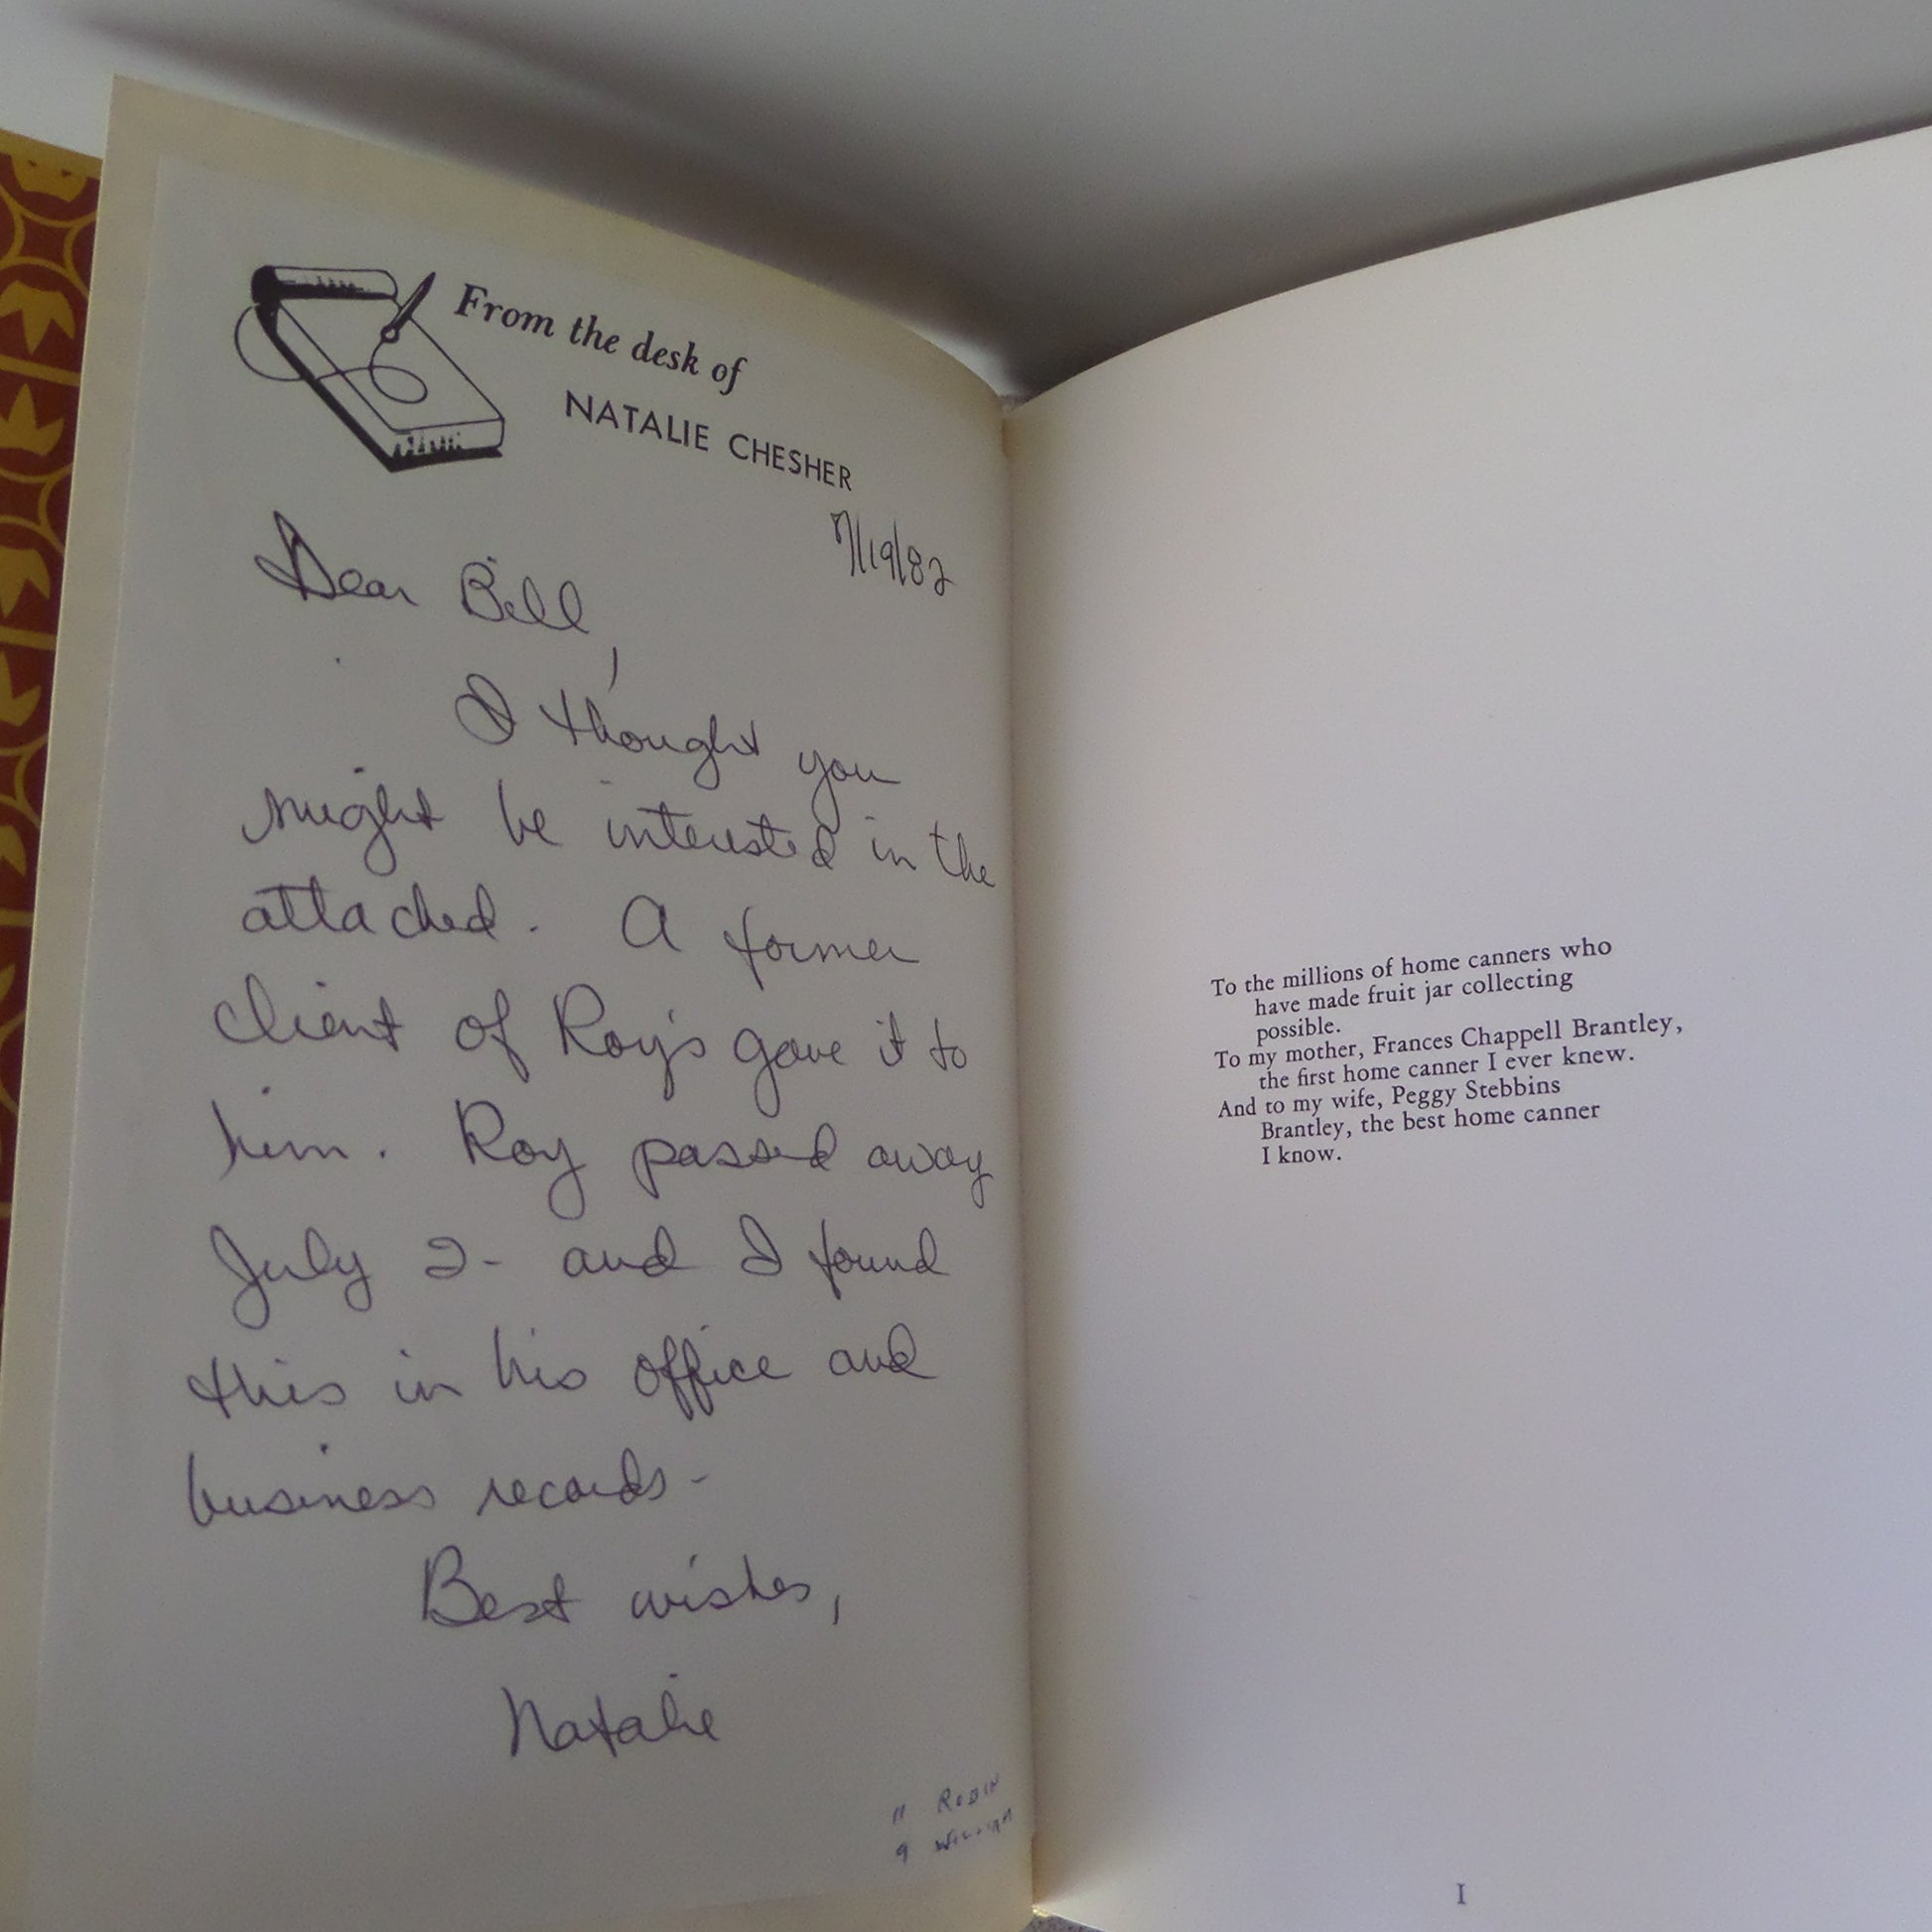 From the desk of
NATALIE CHESHER
7/19/82
Dear Bill,
I thought you
might be interested in the
attached. A former
client of Roy's gave it to
him. Roy passed away
July 2- and I found
this in his office and
business records-
Best wishes,
Natalie
11 ROBIN
9 WILLIAM
To the millions of home canners who
have made fruit jar collecting
possible.
To my mother, Frances Chappell Brantley,
the first home canner I ever knew.
And to my wife, Peggy Stebbins
Brantley, the best home canner
I know.
I